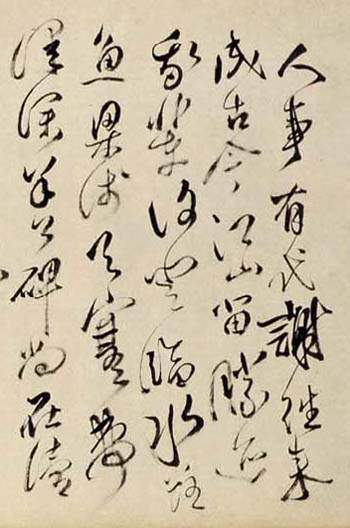 人事有代謝往來
成古今江山留勝迹
我輩復登臨水落
魚梁淺天寒夢
澤深羊公碑尚在讀